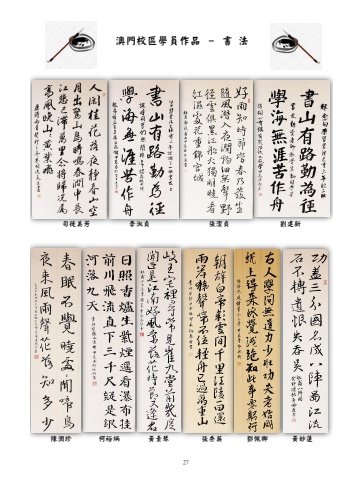 澳門校區學員作品 - 書 法
人閒桂花落夜靜春山空
月出驚山鳥時鳴春澗中長
江悲已滯萬里念將歸況屬
高風晚山山黃葉飛
司徒美芳
書山有路勤為徑
學海無涯苦作舟
李淑貞
好雨知時節當春乃發生
隨風潛入夜潤物細無聲野
徑雲俱黑江船火獨明曉看
紅濕處花重錦官城
張潔貞
書山有路勤為徑
學海無涯苦作舟
劉建新
春眠不覺曉處處聞啼鳥
夜來風雨聲花落知多少
陳潤珍
日照香爐生紫煙遙看瀑布挂
前川飛流直下三千尺疑是銀
河落九天
何裕炳
岐王宅裡尋常見崔九堂前幾度
聞正是江南好風景落花時節又逢君
黃素琴
朝辭白帝彩雲間千里江陵一日還
兩岸猿聲啼不住輕舟已過萬重山
張杏英
古人學問無遺力少壯功夫老始成
紙上得來終覺淺絕知此事要躬行
鄧佩卿
功蓋三分國名成八陣圖江流
石不轉遺恨失吞吳
黃妙蓮
27